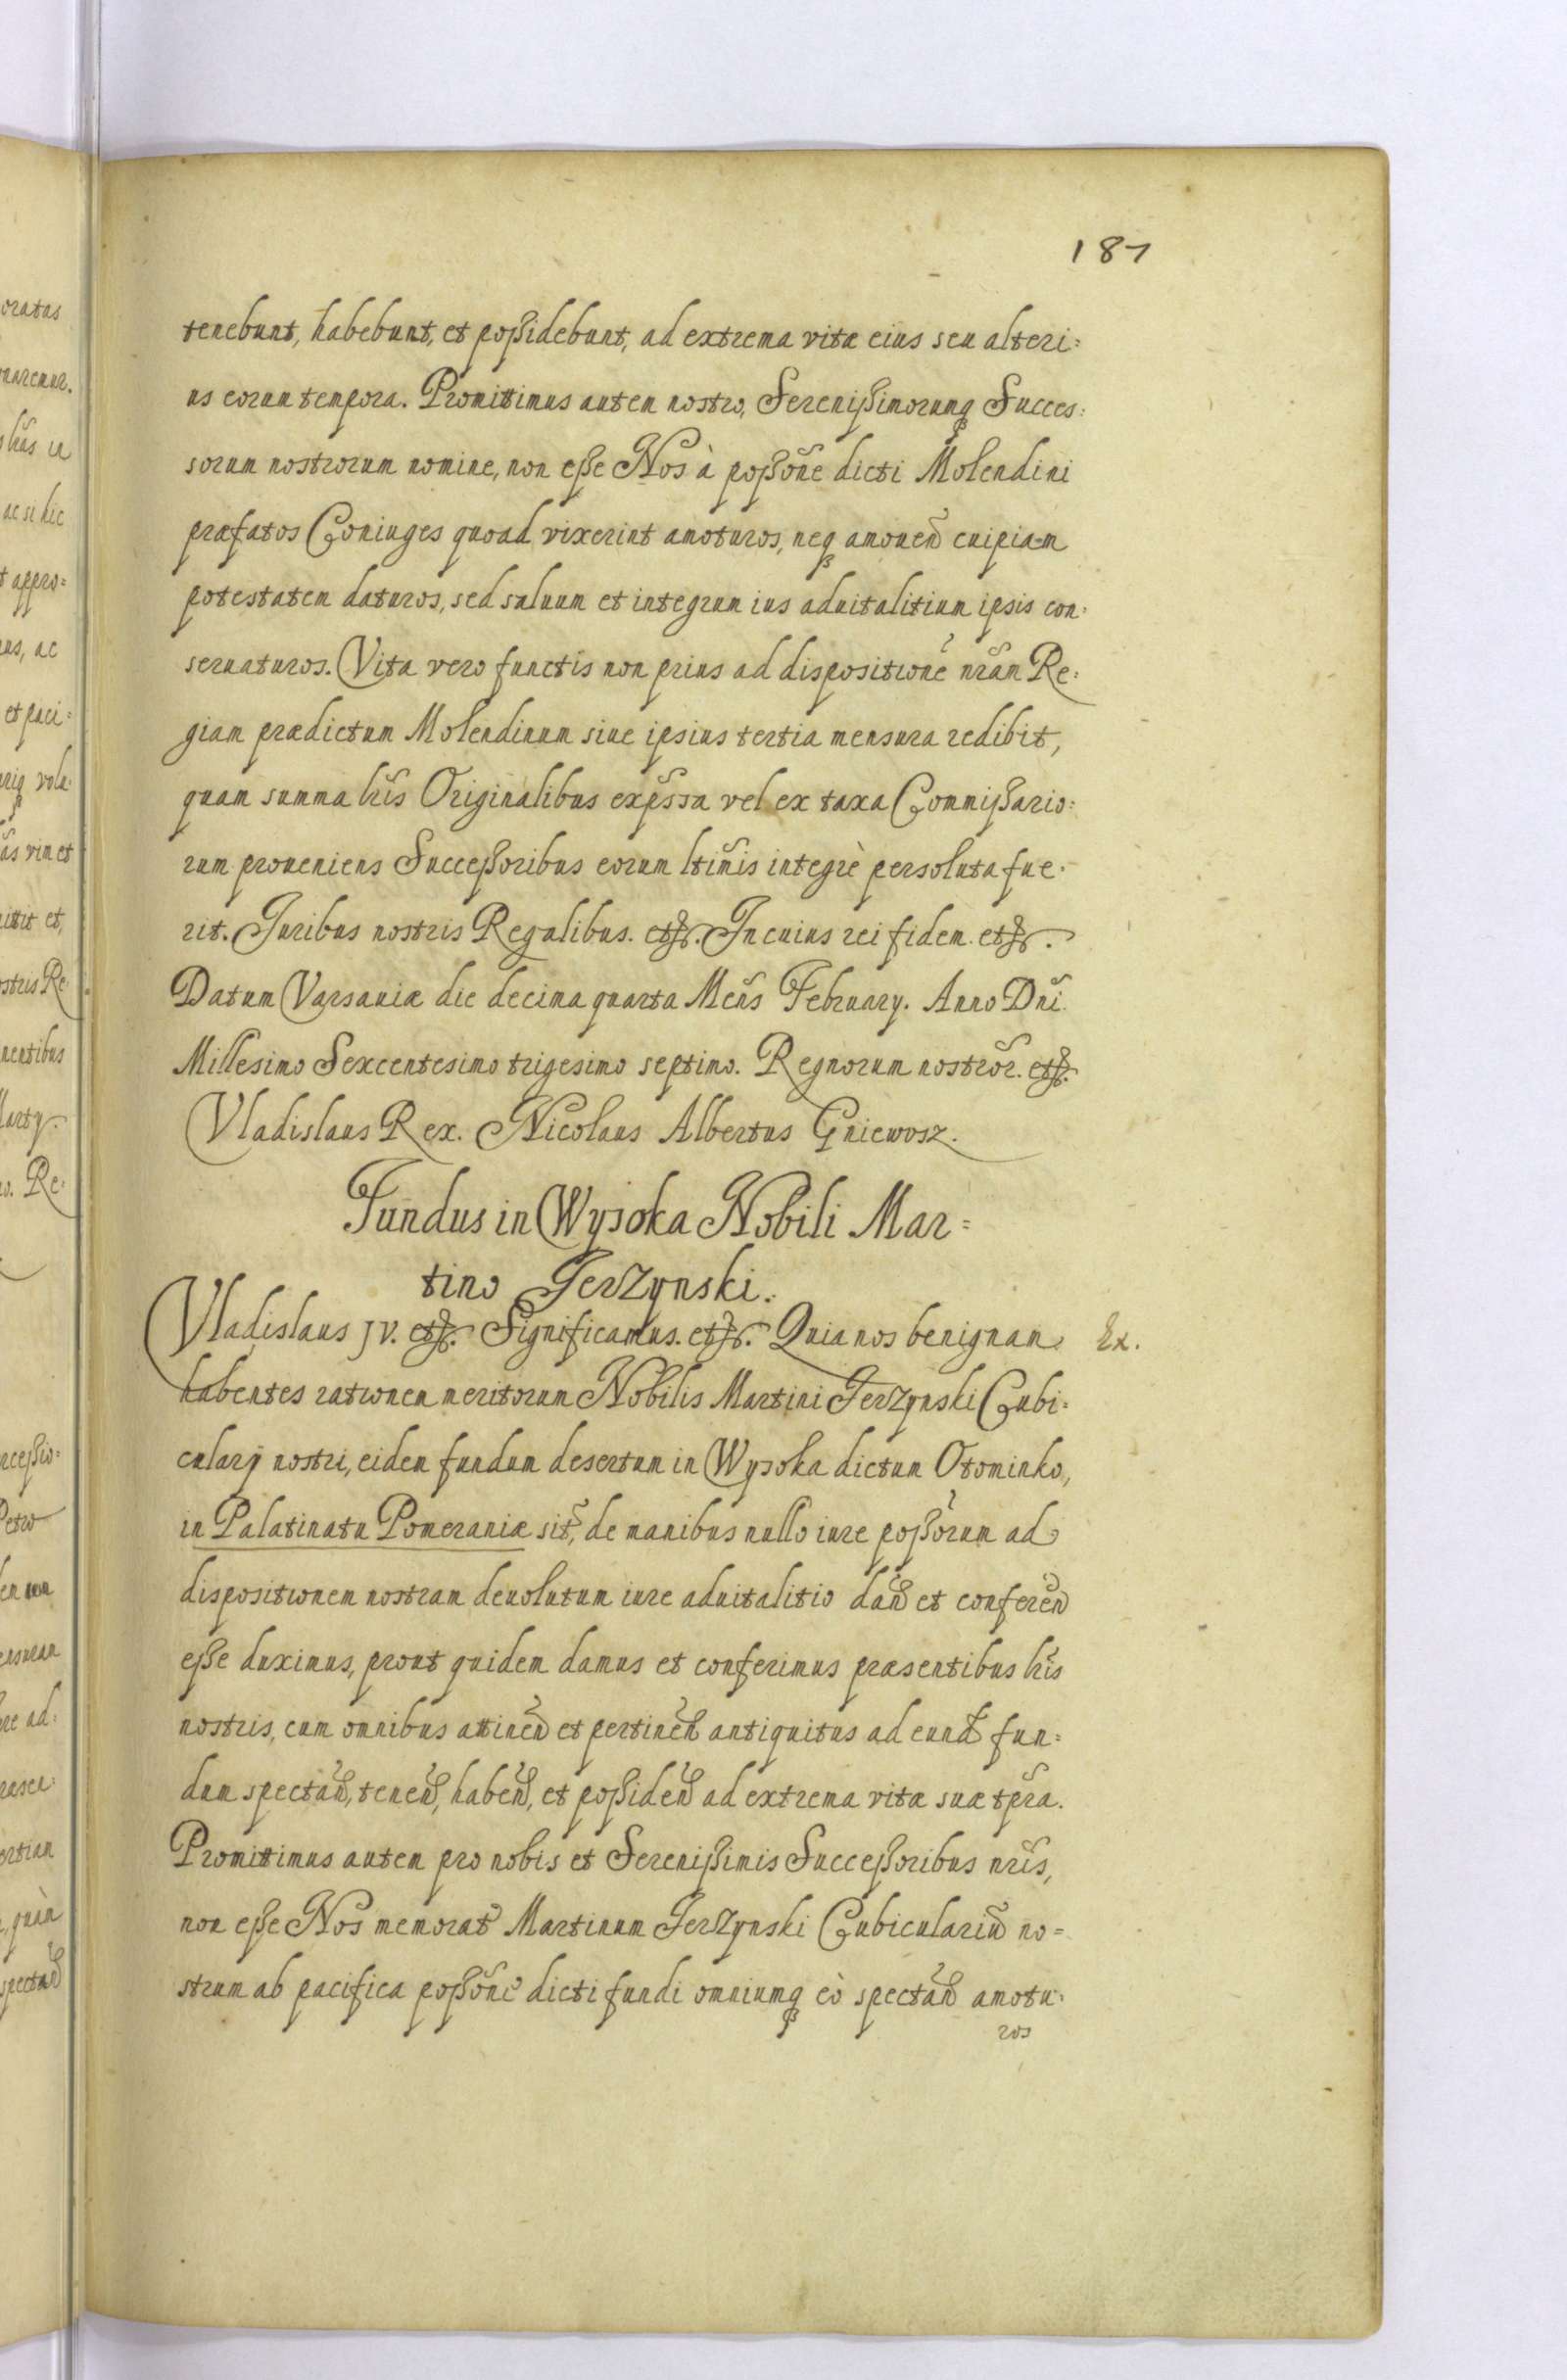 187
tenebunt, habebunt, et poßidebunt, ad extrema vitæ eius seu alteri=
us eorum tempora. Promittimus autem nostro, Serenißimorumq Succes=
sorum nostrorum nomine, non eße Nos à poßone dicti Molendini
præfatos Coniuges quoad vixerint amoturos, neq amouen cuipiam
potestatem daturos, sed saluum et integrum ius aduitalitium ipsis con=
seruaturos. Vita vero functis non prius ad dispositione nram Re=
giam prædictum Molendinum siue ipsius tertia mensura redibit,
quam summa lris Originalibus expssa vel ex taxa Commißario=
rum proueniens Succeßoribus eorum ltimis integrè persoluta fue=
rit. Juribus nostris Regalibus. etc. In cuius rei fidem. etc.
Datum Varsauiæ die decima quarta Mens February. Anno Dni
Millesimo Sexcentesimo trigesimo septimo. Regnorum nostror. etc.
Vladislaus Rex. Nicolaus Albertus Gniewosz.
Fundus in Wysoka Nobili Mar=
tino Jerzynski.
Vladislaus JV. etc. Significamus. etc. Quia nos benignam Ex.
habentes rationem meritorum Nobilis Martini Jerzynski Cubi=
cularij nostri, eidem fundum desertum in Wysoka dictum Otominko,
in Palatinatu Pomeraniæ sit, de manibus nullo iure poßorum ad
dispositionem nostram deuolutum iure aduitalitio dan et conferen
eße duximus, prout quidem damus et conferimus præsentibus lris
nostris, cum omnibus attinen et pertinen antiquitus ad eund fun=
dum spectan, tenen, haben, et poßiden ad extrema vitæ suæ tpra.
Promittimus autem pro nobis et Serenißimis Succeßoribus nris,
non eße Nos memorat Martinum Jerzynski Cubiculariu no=
strum ab pacifica poßone dicti fundi omniumq eò spectan amotu=
ros